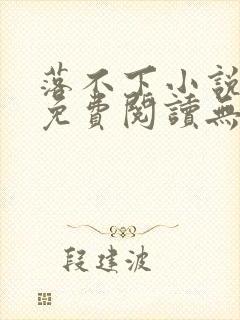 落不下小說
免費閱讀無
段建波